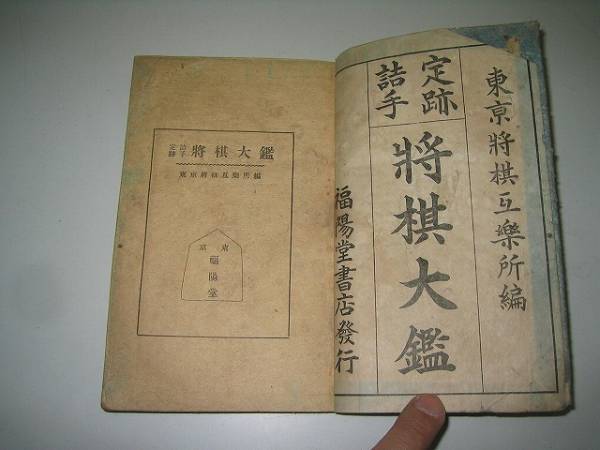 東京將棋互樂所編
定跡
詰手
將棋大鑑
福陽堂書店發行
定跡 詰手 將棋大鑑
東京將棋互樂所編
東京
福陽堂